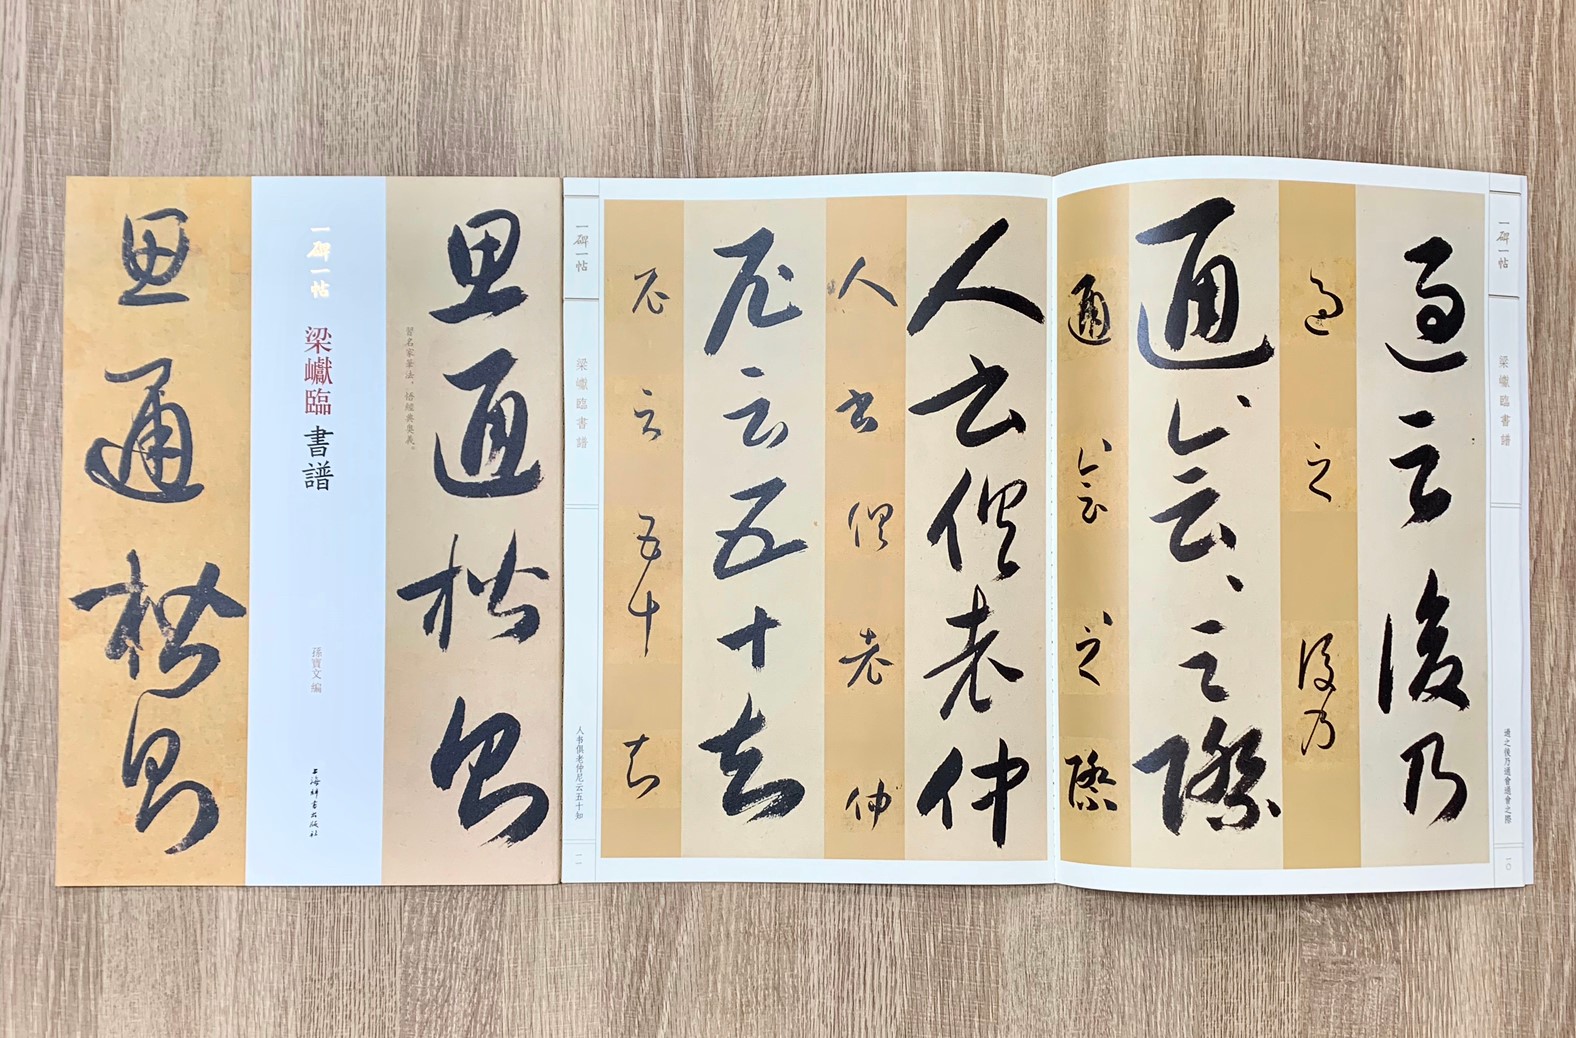 思通楷則
習名家筆法，悟經典奧義。
一碑一帖
梁巘臨書譜
孫寶文 編
上海辭書出版社
思通楷則
一碑一帖
梁巘臨書譜
過之後乃通會通會之際
一〇
過之後乃
過之後乃
通、會、之際
通、會、之際
人書俱老仲
人書俱老仲
尼云五十知
尼云五十知
一碑一帖
梁巘臨書譜
人书俱老仲尼云五十知
一一